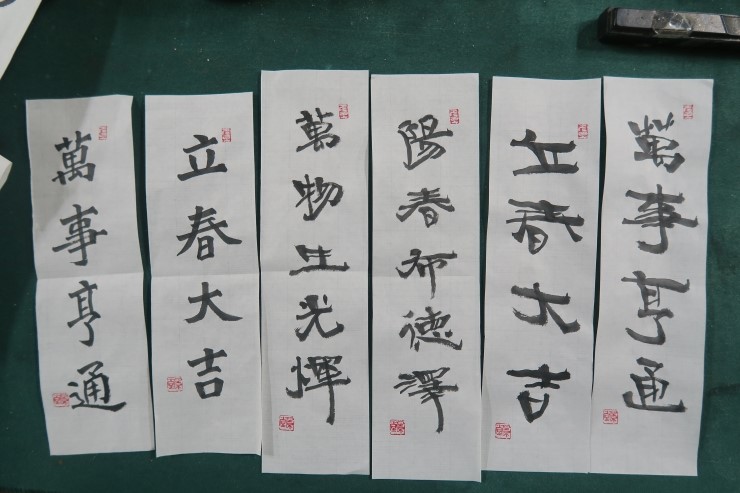 萬事亨通
立春大吉
陽春布德澤
萬物生光煇
立春大吉
萬事亨通